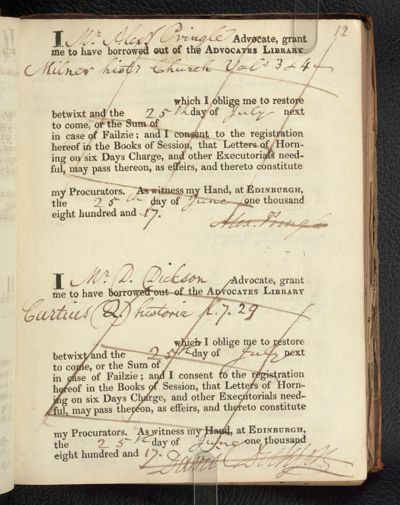 12
I Mr. Alexr Pringle Advocate, grant
me to have borrowed out of the ADVOCATES LIBRARY
Milner's histy Church Vols 3 & 4
which I oblige me to restore
betwixt and the 25th day of July next
to come, or the Sum of
in case of Failzie; and I consent to the registration
hereof in the Books of Session, that Letters of Horn-
ing on six Days Charge, and other Executorials need-
ful, may pass thereon, as effeirs, and thereto constitute
my Procurators. As witness my Hand, at EDINBURGH,
the 25th day of June one thousand
eight hundred and 17.
Alex. Pringle
I Mr. D. Dickson Advocate, grant
me to have borrowed out of the ADVOCATES LIBRARY
Curtius (Q.) historia k.7.29
which I oblige me to restore
betwixt and the 25th day of July next
to come, or the Sum of
in case of Failzie; and I consent to the registration
hereof in the Books of Session, that Letters of Horn-
ing on six Days Charge, and other Executorials need-
ful, may pass thereon, as effeirs, and thereto constitute
my Procurators. As witness my Hand, at EDINBURGH,
the 25th day of June one thousand
eight hundred and 17.
David Dickson